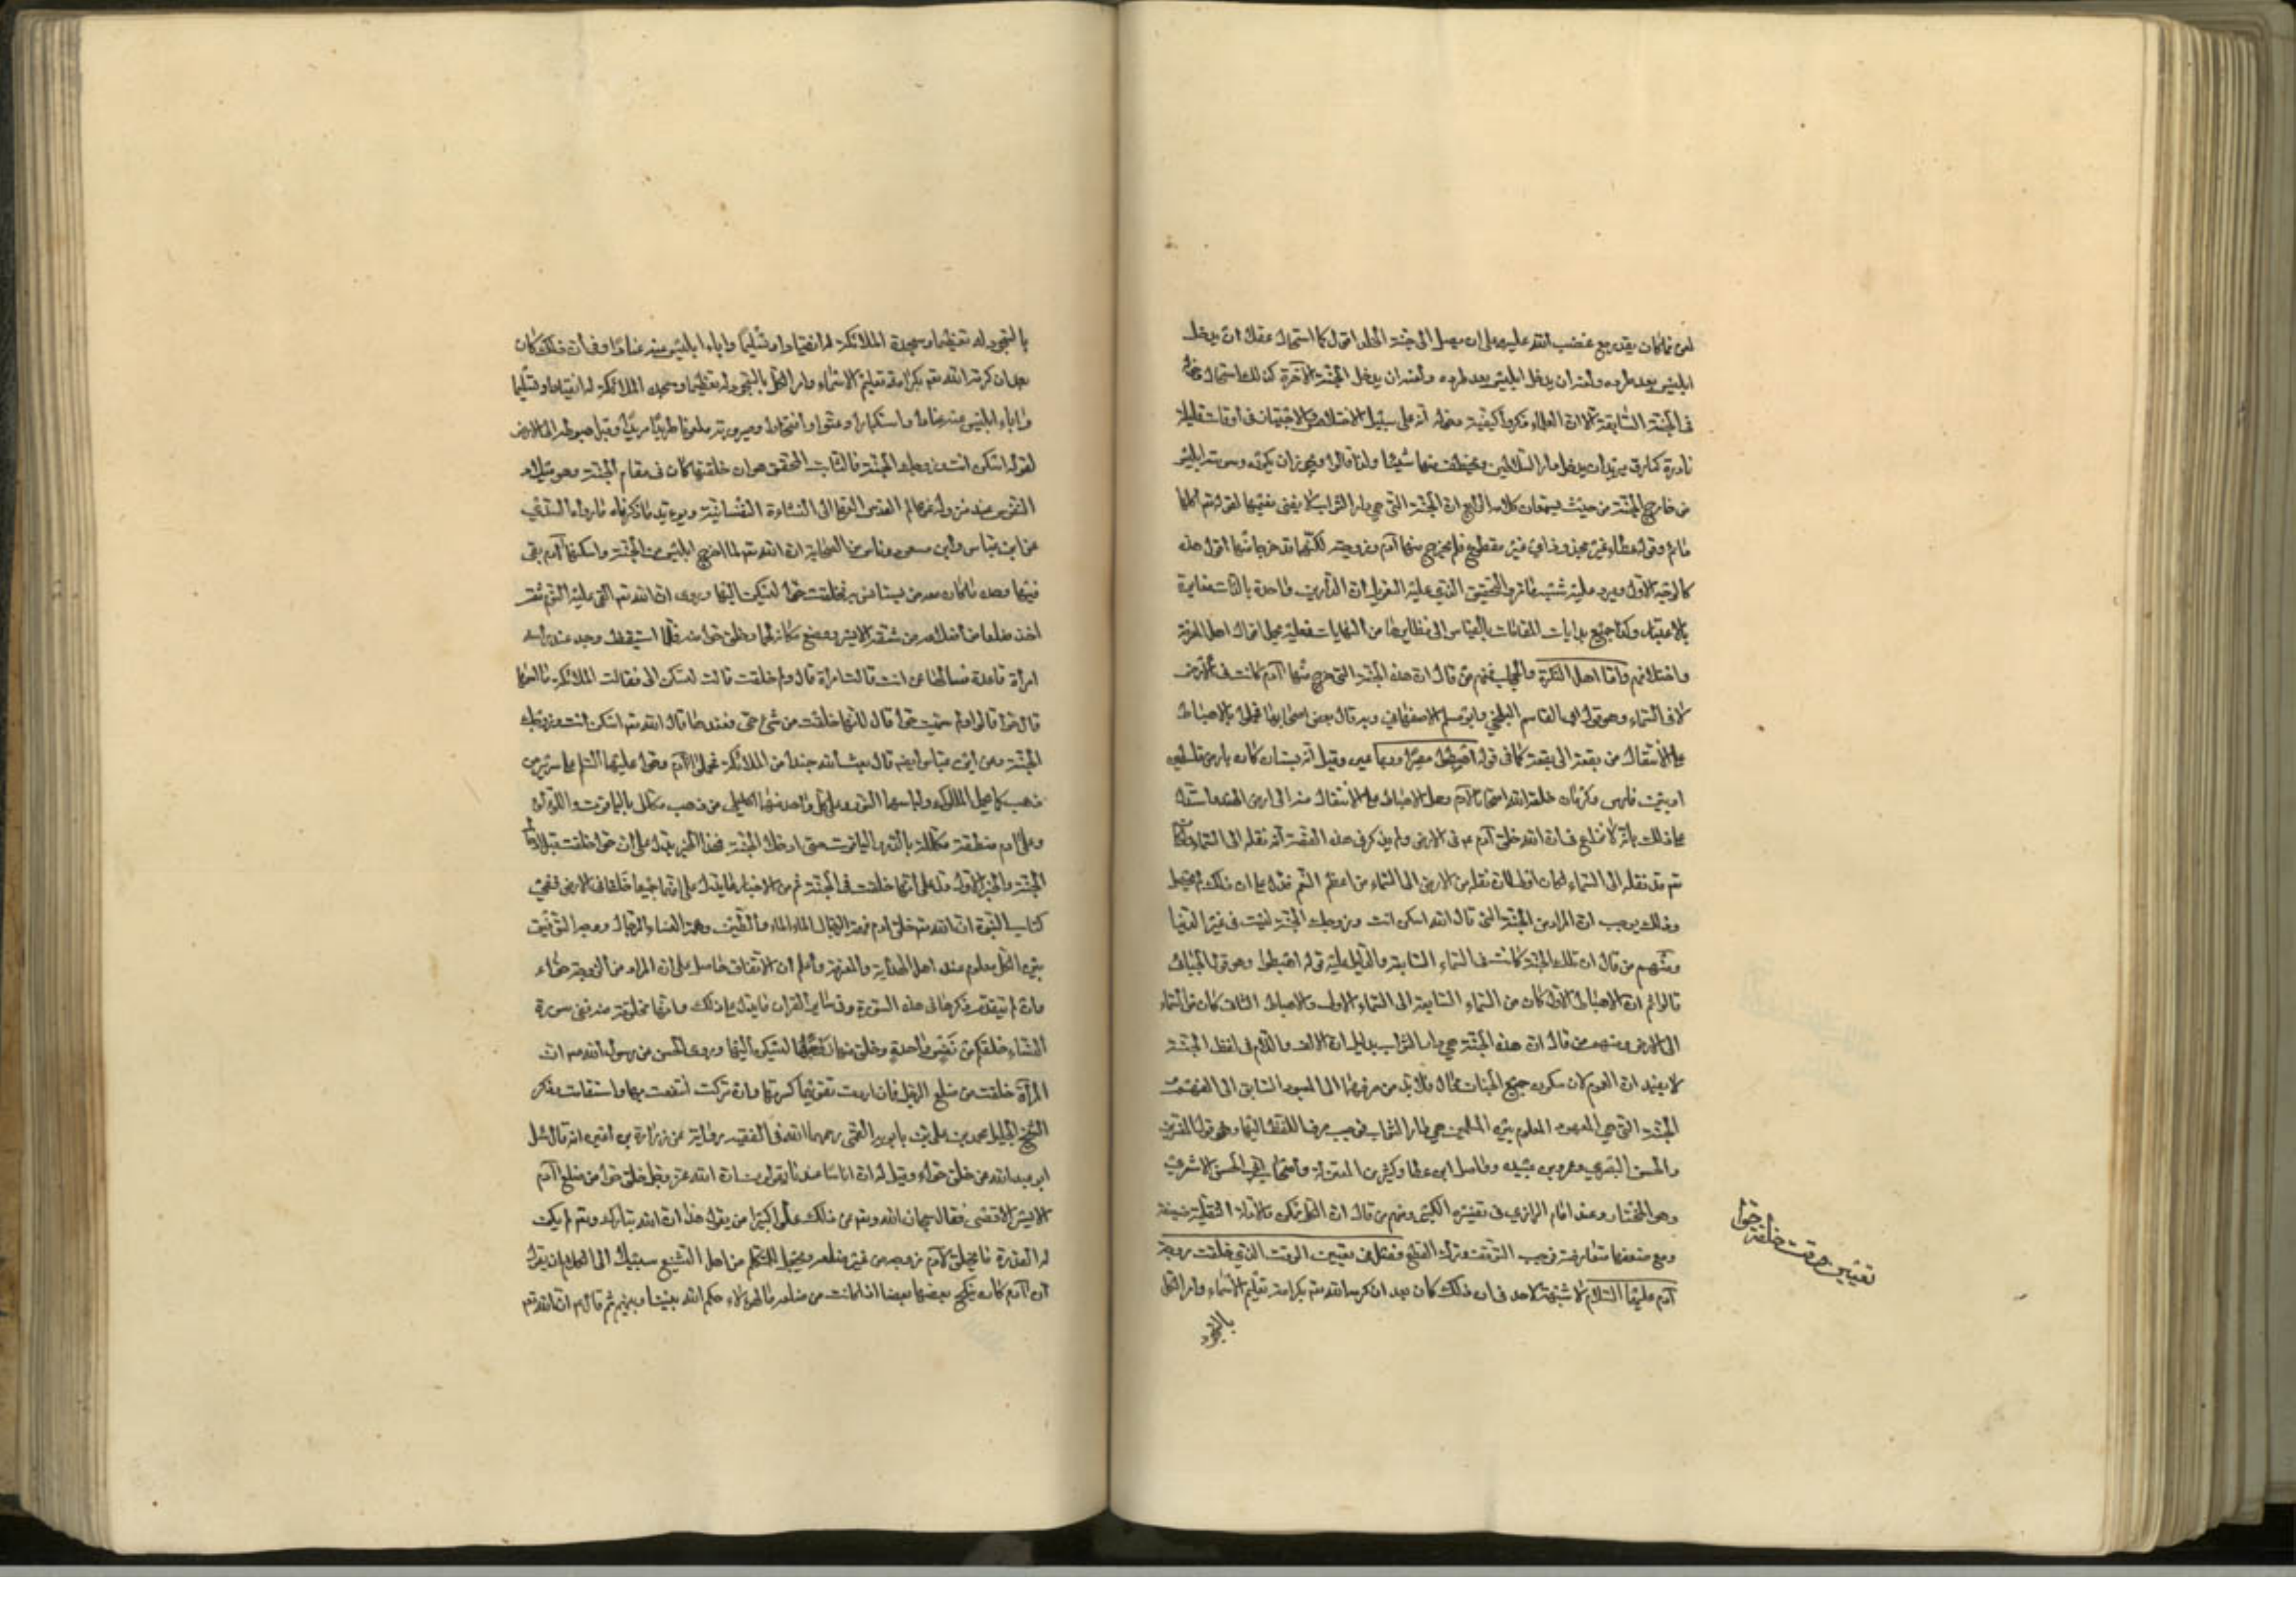 لعن فما كان يقدر مع غضب الله عليه على ان يصل الى جنة الخلد اقول كما استحال عقلك ان يدخل
ابليس بعد طرده ولعنه ان يدخل ابليس بعد طرده ولعنه ان يدخل الجنة الآخرة كذلك استحال دخوله
في الجنة السابقة الا ان العلماء ذكروا كيفية دخوله انه على سبيل الاختلاس والاجتياز في اوقات قليلة
نادرة كسارق يريد ان يدخل دار السلاطين ويختطف منها شيئا ولذا قالوا ويجوز ان يكون وسوسة ابليس
من خارج الجنة من حيث يسمعان كلامه الرابع ان الجنة التي هي دار الثواب لا يفنى نعيمها لقوله تع اكلها
دائم وقوله عطاء غير مجذوذ اي غير مقطوع فلم يخرج منها آدم وزوجته لكنهما قد خرجا منها اقول هذه
كالوجه الاول ويرد عليه شبه ما تر والتحقيق الذي عليه التعويل ان الدارين واحدة بالذات متغايرة
بالاعتبار وكذا جميع بدايات المقامات بالقياس الى نظايرها من النهايات فعليه يحمل اقوال اهل المعرفة
واختلافهم واما اهل النظرة والحجاب فمنهم من قال ان هذه الجنة التي خرج منها آدم كانت في الارض
لا في السماء وهو قول ابي القاسم البلخي وابو مسلم الاصفهاني وبه قال بعض اصحابنا فحملوا الاهباط
على الانتقال من بقعة الى بقعة كما في قوله اهبطوا مصرا وقيل انه بستان كان بارض فلسطين
او بين فارس وكرمان خلقه الله امتحانا لآدم وحمل الاهباط على الانتقال منه الى ارض الهند واستدل
على ذلك بانه لا نزاع في ان الله خلق آدم ع في الارض ولم يذكر في هذه القصة انه نقله الى السماء ولو كان
تع قد نقله الى السماء لكان اولى لان نقله من الارض الى السماء من اعظم النعم فدل على ان ذلك لم يحصل
وذلك يوجب ان المراد من الجنة التي قال الله اسكن انت وزوجك الجنة ليست في غير الدنيا
ومنهم من قال ان تلك الجنة كانت في السماء السابعة والدليل عليه قوله اهبطوا وهو قول الجبائي
قالوا ثم ان الاهباط الاول كان من السماء السابعة الى السماء الاولى والاهباط الثاني كان من السماء
الى الارض ومنهم من قال ان هذه الجنة هي دار الثواب بدليل ان الالف واللام في لفظ الجنة
لا يفيد ان العموم لان سكون جميع الجنان محال فلا بد من صرفها الى المعهود السابق
الجنة التي هي المعهود المعلوم بين المسلمين هي دار الثواب فوجب صرف اللفظ اليها وهو قول المفسرين
والحسن البصري وعمرو بن عبيد وواصل ابن عطا وكثير من المعتزلة واصحاب ابي الحسن الاشعري
وهو المختار وعند امام الرازي في تفسيره الكبير ومنهم من قال ان الكل ممكن والادلة النقلية ضعيفة
ومع ضعفها متعارضة فوجب التوقف وترك القطع فصل في تعيين الوقت الذي خلقت زوجة
آدم عليهما السلام لا شبهة لاحد في ان ذلك كان بعد ان كرمه الله تع بكرامة تعليم الاسماء وامر الكل
بالسجود
تعيين وقت خلقة حوا
بالسجود له تعظيما وسجدة الملائكة له انقيادا وتسليما واباء ابليس منه عنادا وفي ان ذلك كان
بعد ان كرمه الله تع بكرامة تعليم الاسماء وامر الكل بالسجود له تعظيما وسجد الملائكة له انقيادا وتسليما
واباء ابليس منه عنادا واستكبارا وعتوا وافتخارا وصيرورته ملعونا طريدا مريدا وقبل هبوطه الى الارض
لقوله اسكن انت وزوجك الجنة فالثابت المحقق هو ان خلقتها كان في مقام الجنة وهو ميلاد
النفوس عند نزوله من عالم القدس الى النشاءة النفسانية ويؤيد ما ذكرناه ما رواه السدي
عن ابن عباس وابن مسعود وناس من الصحابة ان الله تع لما اخرج ابليس من الجنة واسكنها آدم بقي
فيها وحده ما كان معه من يستانس به فخلقت حوا ليسكن اليها وروى ان الله تع القى عليه النوم ثم
اخذ ضلعا من اضلاعه من شقه الايسر ووضع مكانه لحما وخلق حوا منه فلما استيقظ وجد عند رأسه
امرأة قاعدة فسألها من انت قالت امرأة قال ولم خلقت قالت لتسكن الي فقالت الملائكة ما اسمها
قال حوا قالوا ولم سميت حوا قال لانها خلقت من شئ حي وعندها قال الله تع اسكن انت وزوجك
الجنة وعن ابن عباس ايضا قال بعث الله جندا من الملائكة فحملوا آدم وحوا عليهما السلم على سرير من
ذهب كما يحمل الملوك ولباسهما النور وعلى كل واحد منهما اكليل من ذهب مكلل بالياقوت واللؤلؤ
وعلى آدم منطقة مكللة بالدر والياقوت حتى ادخلا الجنة فهذا الخبر يدل على ان حوا خلقت قبل ادخال
الجنة والخبر الاول يدل على انها خلقت في الجنة ثم من الاخبار ما يدل على انهما جميعا خلقا في الارض ففي
كتاب النبوة ان الله تع خلق آدم من الطين فهمة الرجال الماء والطين وهمة النساء الرجال ووجه التوفيق
بين الكل معلوم عند اهل الهداية والمعرفة واعلم ان الاتفاق حاصل على ان المراد من الزوجة حواء
وان لم يتقدم ذكرها في هذه السورة وفي ساير القرآن ما يدل على ذلك وانها مخلوقة منه ففي سورة
النساء خلقكم من نفس واحدة وخلق منها زوجها ليسكن اليها وروى الحسن عن رسول الله ص ان
المرأة خلقت من ضلع الرجل فان اردت تقويمها كسرتها وان تركت انتفعت بها واستقامت وذكر
الشيخ الجليل محمد بن علي بن بابويه القمي رحمهما الله في الفقيه رواية عن زرارة بن اعين انه قال سئل
ابو عبد الله عن خلق حواء وقيل له ان اناسا عندنا يقولون ان الله عز وجل خلق حوا من ضلع آدم
الايسر الاقصى فقال سبحان الله وتع عن ذلك علوا كبيرا من يقول هذا ان الله تبارك وتع لم يكن
له القدرة ما يخلق لآدم زوجه من غير ضلعه ويجعل للمتكلم من اهل التشنيع سبيلا الى الكلام ان يقول
ان آدم كان ينكح بعضها بعضا اذا كانت من ضلعه ما لهؤلاء حكم الله بيننا وبينهم ثم قال ان الله تع